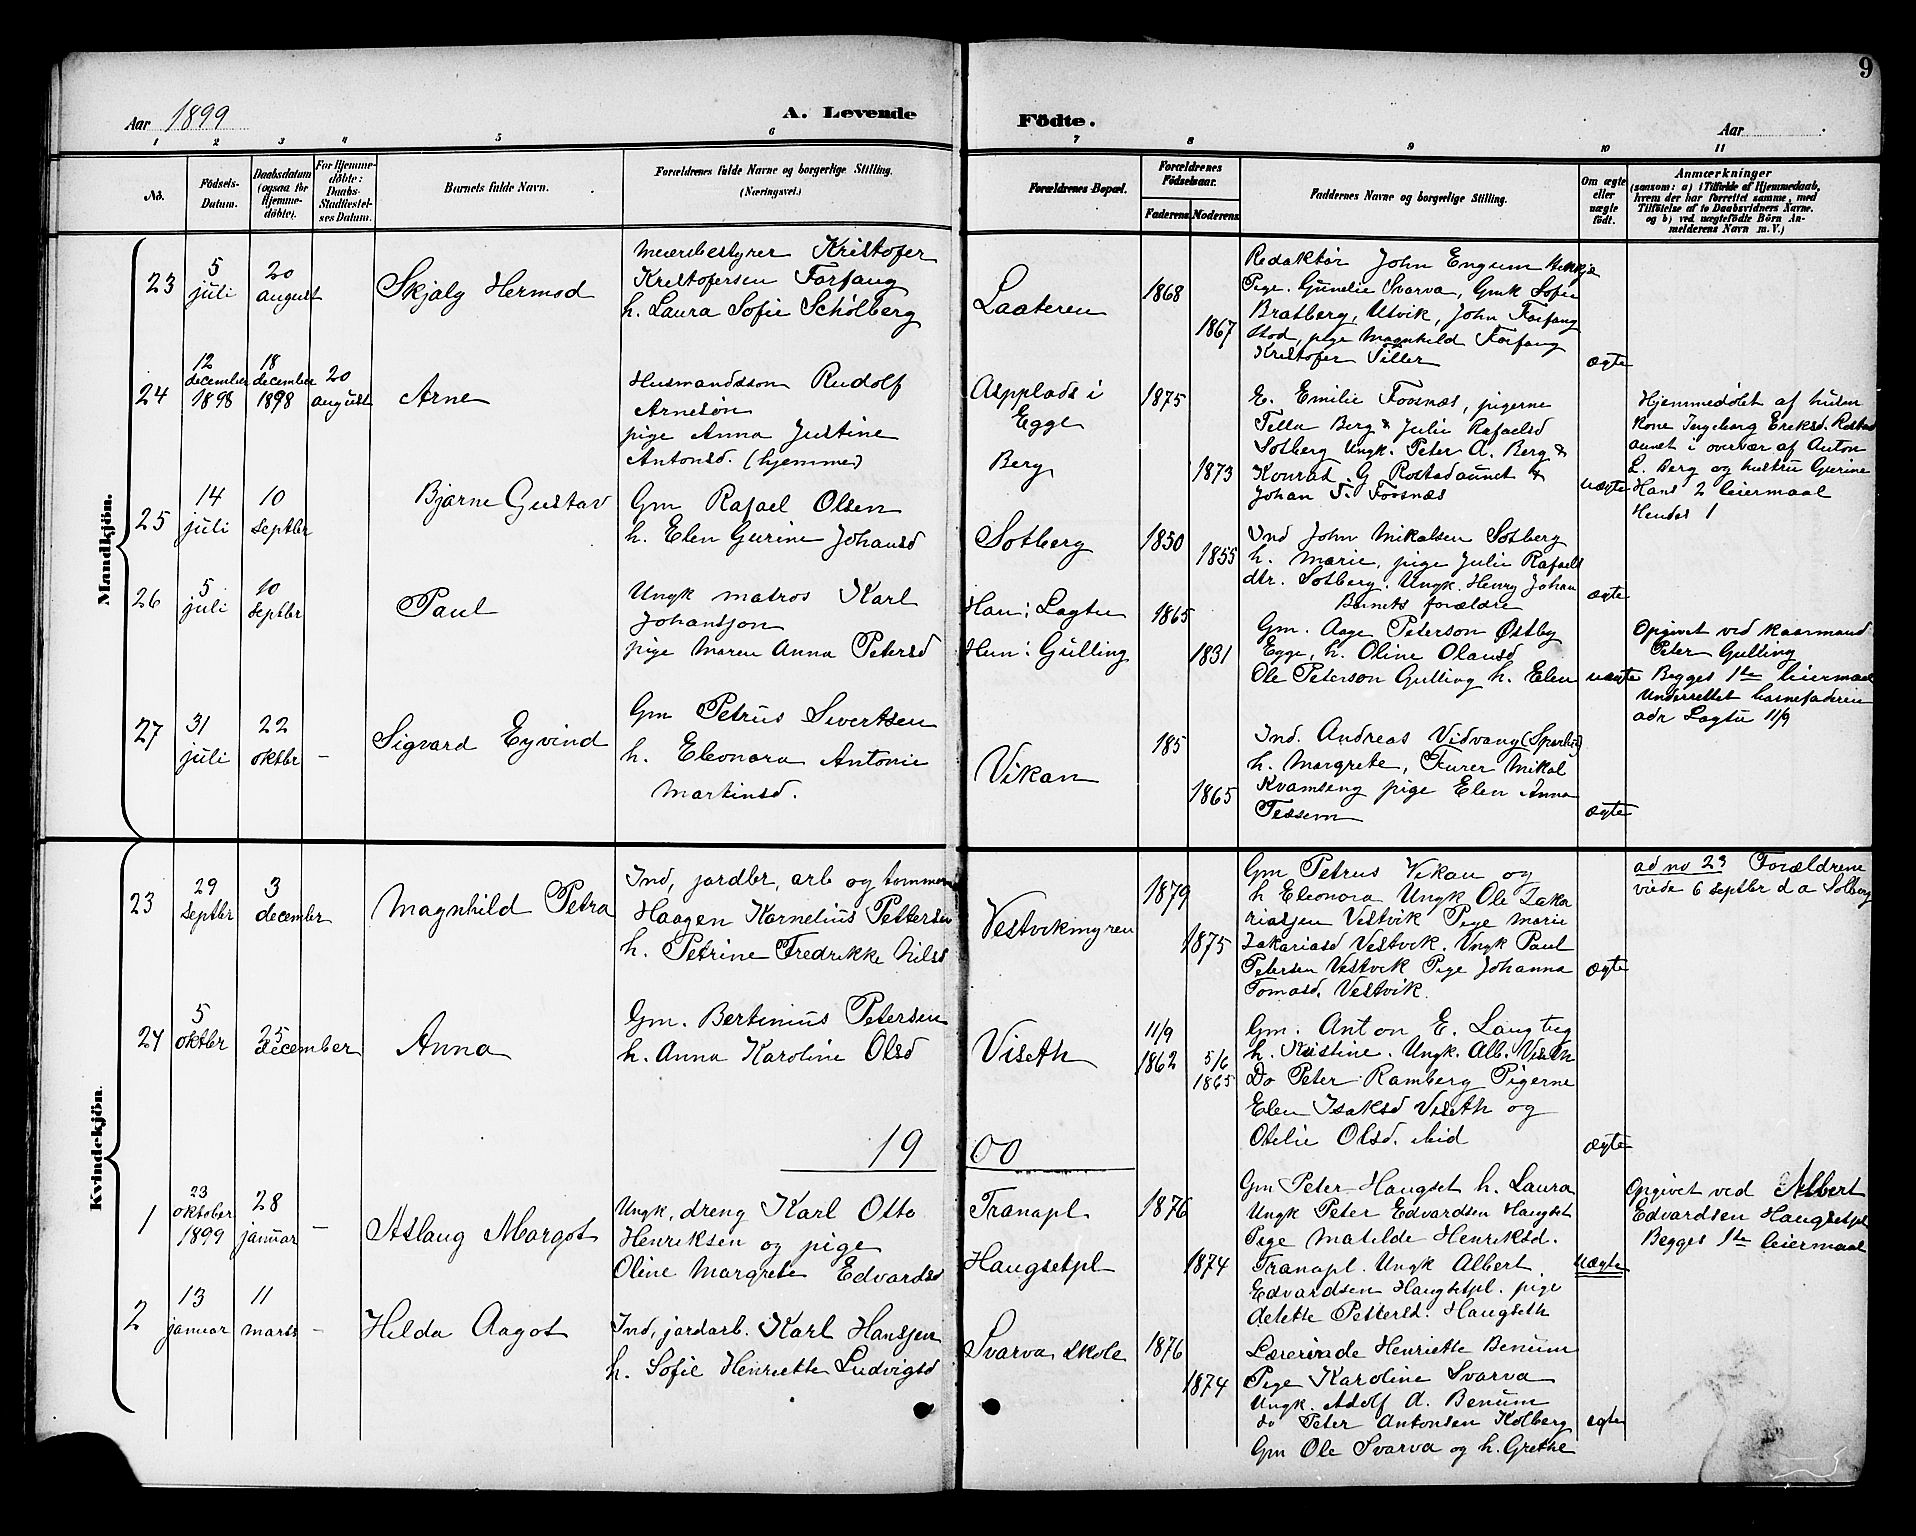 9
Aar 1899
A. Levende
Födte.
Aar
1 2 3 4 5 6 7 8 9 10 11
No.
Födsels-Datum.
Daabsdatum (ogsaa for Hjemmedöbte).
For Hjemmedöbte: Daabs-Stadfæstelses Datum.
Barnets fulde Navn.
Forældrenes fulde Navne og borgerlige Stilling. (Næringsvei.)
Forældrenes Bopæl.
Forældrenes Födselsaar.
Faderens Moderens
Faddernes Navne og borgerlige Stilling.
Om ægte eller uægte födt.
Anmærkninger
(saasom: a) i Tilfælde af Hjemmedaab, hvem der har forrettet samme, med Tilföielse af to Daabsvidners Navne, og b) ved uægtefödte Börn Anmelderens Navn m. V.)
Mandkjön.
23
5 juli
20 august
Skjalg Hermod
Meieribestyrer Kristofer
Kristofersen Forfang
h. Laura Sofie Schölberg
Laateren
1868
1867
Redaktør John Engum
Pige Gunelie Svarva, Gmk Sofie
Bratberg, Utvik, John Forfang
Stod, pige Magnhild Forfang
Kristofer Tiller
ægte
24
12 december 1898
18 december 1898
20 august
Arne
Husmandssøn Rudolf
Arnesøn
pige Anna Justine
Antonsd. (hjemme)
Aspplads i
Egge
Berg
1875
1873
E. Emilie Foosnæs, pigerne
Tella Berg & Julie Rafaelsd
Sotberg Ungk. Peter A. Berg &
Konrad G Rostadaunet &
Johan T. Foosnæs
uægte
Hjemmedøbt af husm
kone Ingeborg Ereksd. Rostad
aunet i overvær af Anton
L. Berg og hustru Gurine
Hans 2 leiermaal
Hendes 1
25
14 juli
10 septbr
Bjarne Gustav
Gm Rafael Olsen
h. Elen Gurine Johansd
Sotberg
1850
1855
Ind John Mikalsen Sotberg
h. Marie, pige Julie Rafaels
dtr. Sotberg. Ungk. Henry Johan
Barnets forældre
ægte
26
5 juli
10 septbr
Paul
Ungk matros Karl
Johansson
pige Maren Anna Petersd
Han: Lagtu
Hun: Gulling
1865
1831
Gm. Aage Peterson Østby
Egge, h. Oline Olausd
Ole Peterson Gulling h. Elen
uægte
Opgivet ved Kaarmand
Peter Gulling
Begges 1ste leiermaal
Underrettet barnefaderen
adr Lagtu 11/9
27
31 juli
22 oktbr
-
Sigvard Eyvind
Gm Petrus Sivertsen
h. Eleonora Antonie
Martinsd.
Vikan
185
1865
Ind. Andreas Vidvang (Sparbu)
h. Margrete, Furer Mikal
Kvamseng pige Elen Anna
Tessem
ægte
Kvindekjön.
23
29 septbr
3 december
Magnhild Petra
Ind, jordbr, arb og tømmerm
Haagen Kornelius Pettersen
h. Petrine Fredrikke Nilsd
Vestvikmyren
1879
1875
Gm Petrus Vikan og
h Eleonora Ungk Ole Zaka
riassen Vestvik Pige Marie
Zakariasd Vestvik. Ungk Paul
Petersen Vestvik Pige Johanna
Tomasd. Vestvik.
ægte
ad no 23 Forældrene
viede 6 septbr d a Solberg
24
5 oktbr
25 december
Anna
Gm. Bertinius Petersen
h. Anna Karoline Olsd
Viseth
11/9 1862
5/6 1865
Gm. Anton E. Langtug
h. Kristine. Ungk. Alb. Viseth
Do Peter Ramberg Pigerne
Elen Isaksd Viseth og
Otelie Olsd. ibid
ægte
1900
1
23 oktober 1899
28 januar
-
Aslaug Margot
Ungk, dreng Karl Otto
Henriksen og pige
Oline Margrete Edvardsd
Tranapl
Haugsetpl
1876
1874
Gm Peter Haugset h. Laura
Ungk Peter Edvardsen Haugset
Pige Matilde Henriksd.
Tranapl. Ungk Albert
Edvardsen Haugsetpl. pige
Petersd. Haugseth
uægte
Opgivet ved Albert
Edvardsen Haugsetpl
Begges 1ste leiermaal
2
13 januar
11 marts
-
Hilda Aagot
Ind, jordarb. Karl Hanssen
h. Sofie Henriette Ludvigsd
Svarva skole
1876
1874
Lærerinde Henriette Benum
Pige Karoline Svarva
Ungk. Adolf A. Benum
do Peter Antonsen Kolberg
Gm Ole Svarva og h. Grethe
ægte